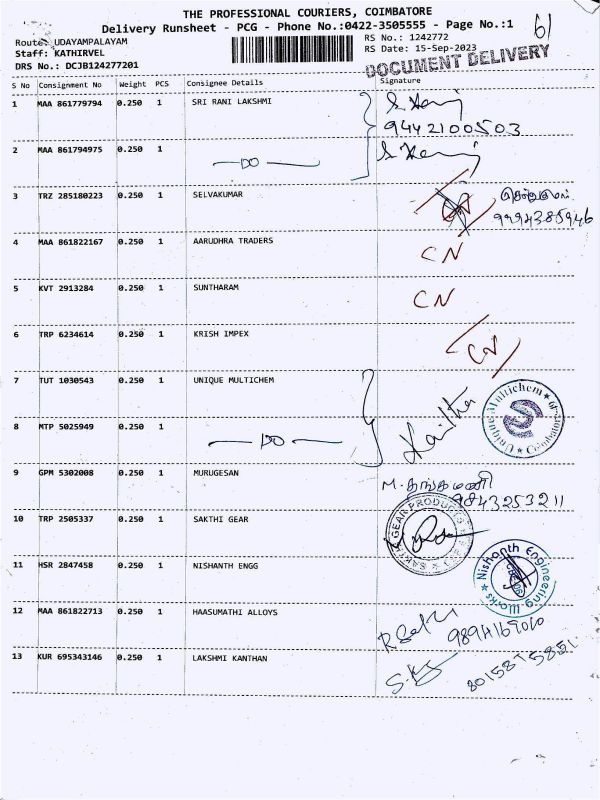 THE PROFESSIONAL COURIERS, COIMBATORE
Delivery Runsheet - PCG - Phone No.:0422-3505555 - Page No.:1
61
Route: UDAYAMPALAYAM
RS No.: 1242772
Staff: KATHIRVEL
RS Date: 15-Sep-2023
DRS No.: DCJB124277201
DOCUMENT DELIVERY
S No Consignment No Weight PCS Consignee Details Signature
1 MAA 861779794 0.250 1 SRI RANI LAKSHMI
9442100503
2 MAA 861794975 0.250 1 —DO—
3 TRZ 285180223 0.250 1 SELVAKUMAR CN செல்வகுமார்
9994385946
4 MAA 861822167 0.250 1 AARUDHRA TRADERS CN
5 KVT 2913284 0.250 1 SUNTHARAM CN
6 TRP 6234614 0.250 1 KRISH IMPEX CN
7 TUT 1030543 0.250 1 UNIQUE MULTICHEM
Unique Multichem Coimbatore
8 MTP 5025949 0.250 1 —DO—
9 GPM 5302008 0.250 1 MURUGESAN M. தங்கமணி
9843253211
10 TRP 2505337 0.250 1 SAKTHI GEAR
SAKTHI GEAR PRODUCTS
11 HSR 2847458 0.250 1 NISHANTH ENGG
Nishanth Engineering Works
12 MAA 861822713 0.250 1 HAASUMATHI ALLOYS
9894169010
13 KUR 695343146 0.250 1 LAKSHMI KANTHAN
8015875851